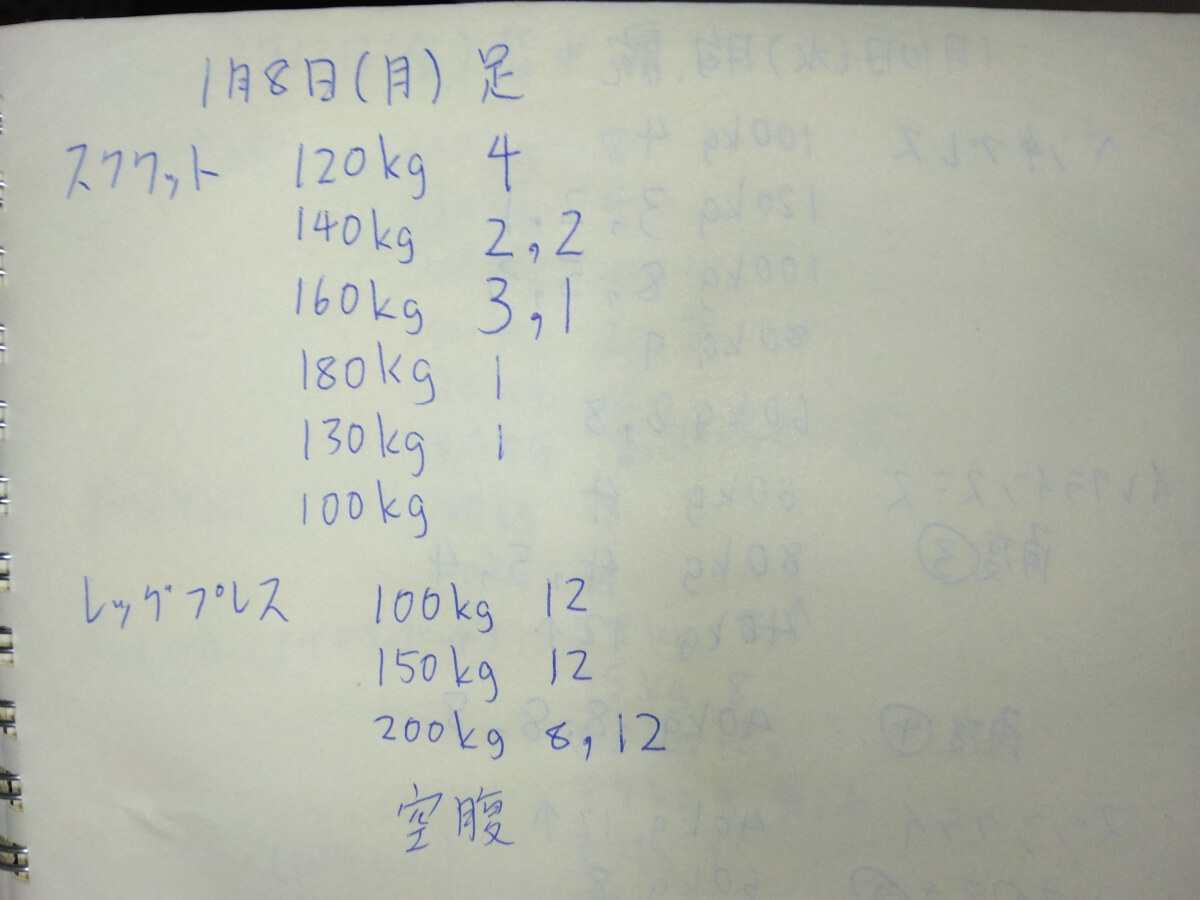 1月8日(月) 足
スクワット 120kg 4
140kg 2,2
160kg 3,1
180kg 1
130kg 1
100kg
レッグプレス 100kg 12
150kg 12
200kg 8,12
空腹